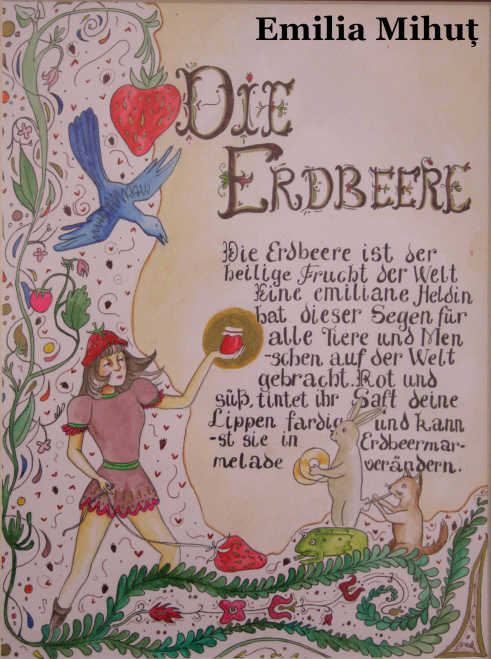 Emilia Mihuț
DIE
ERDBEERE
Die Erdbeere ist der
heilige Frucht der Welt
Eine emiliane Heldin
hat dieser Segen für
alle Tiere und Men
-schen auf der Welt
gebracht. Rot und
süß, tintet ihr Saft deine
Lippen fardig und kann
-st sie in Erdbeermar-
melade verändern.